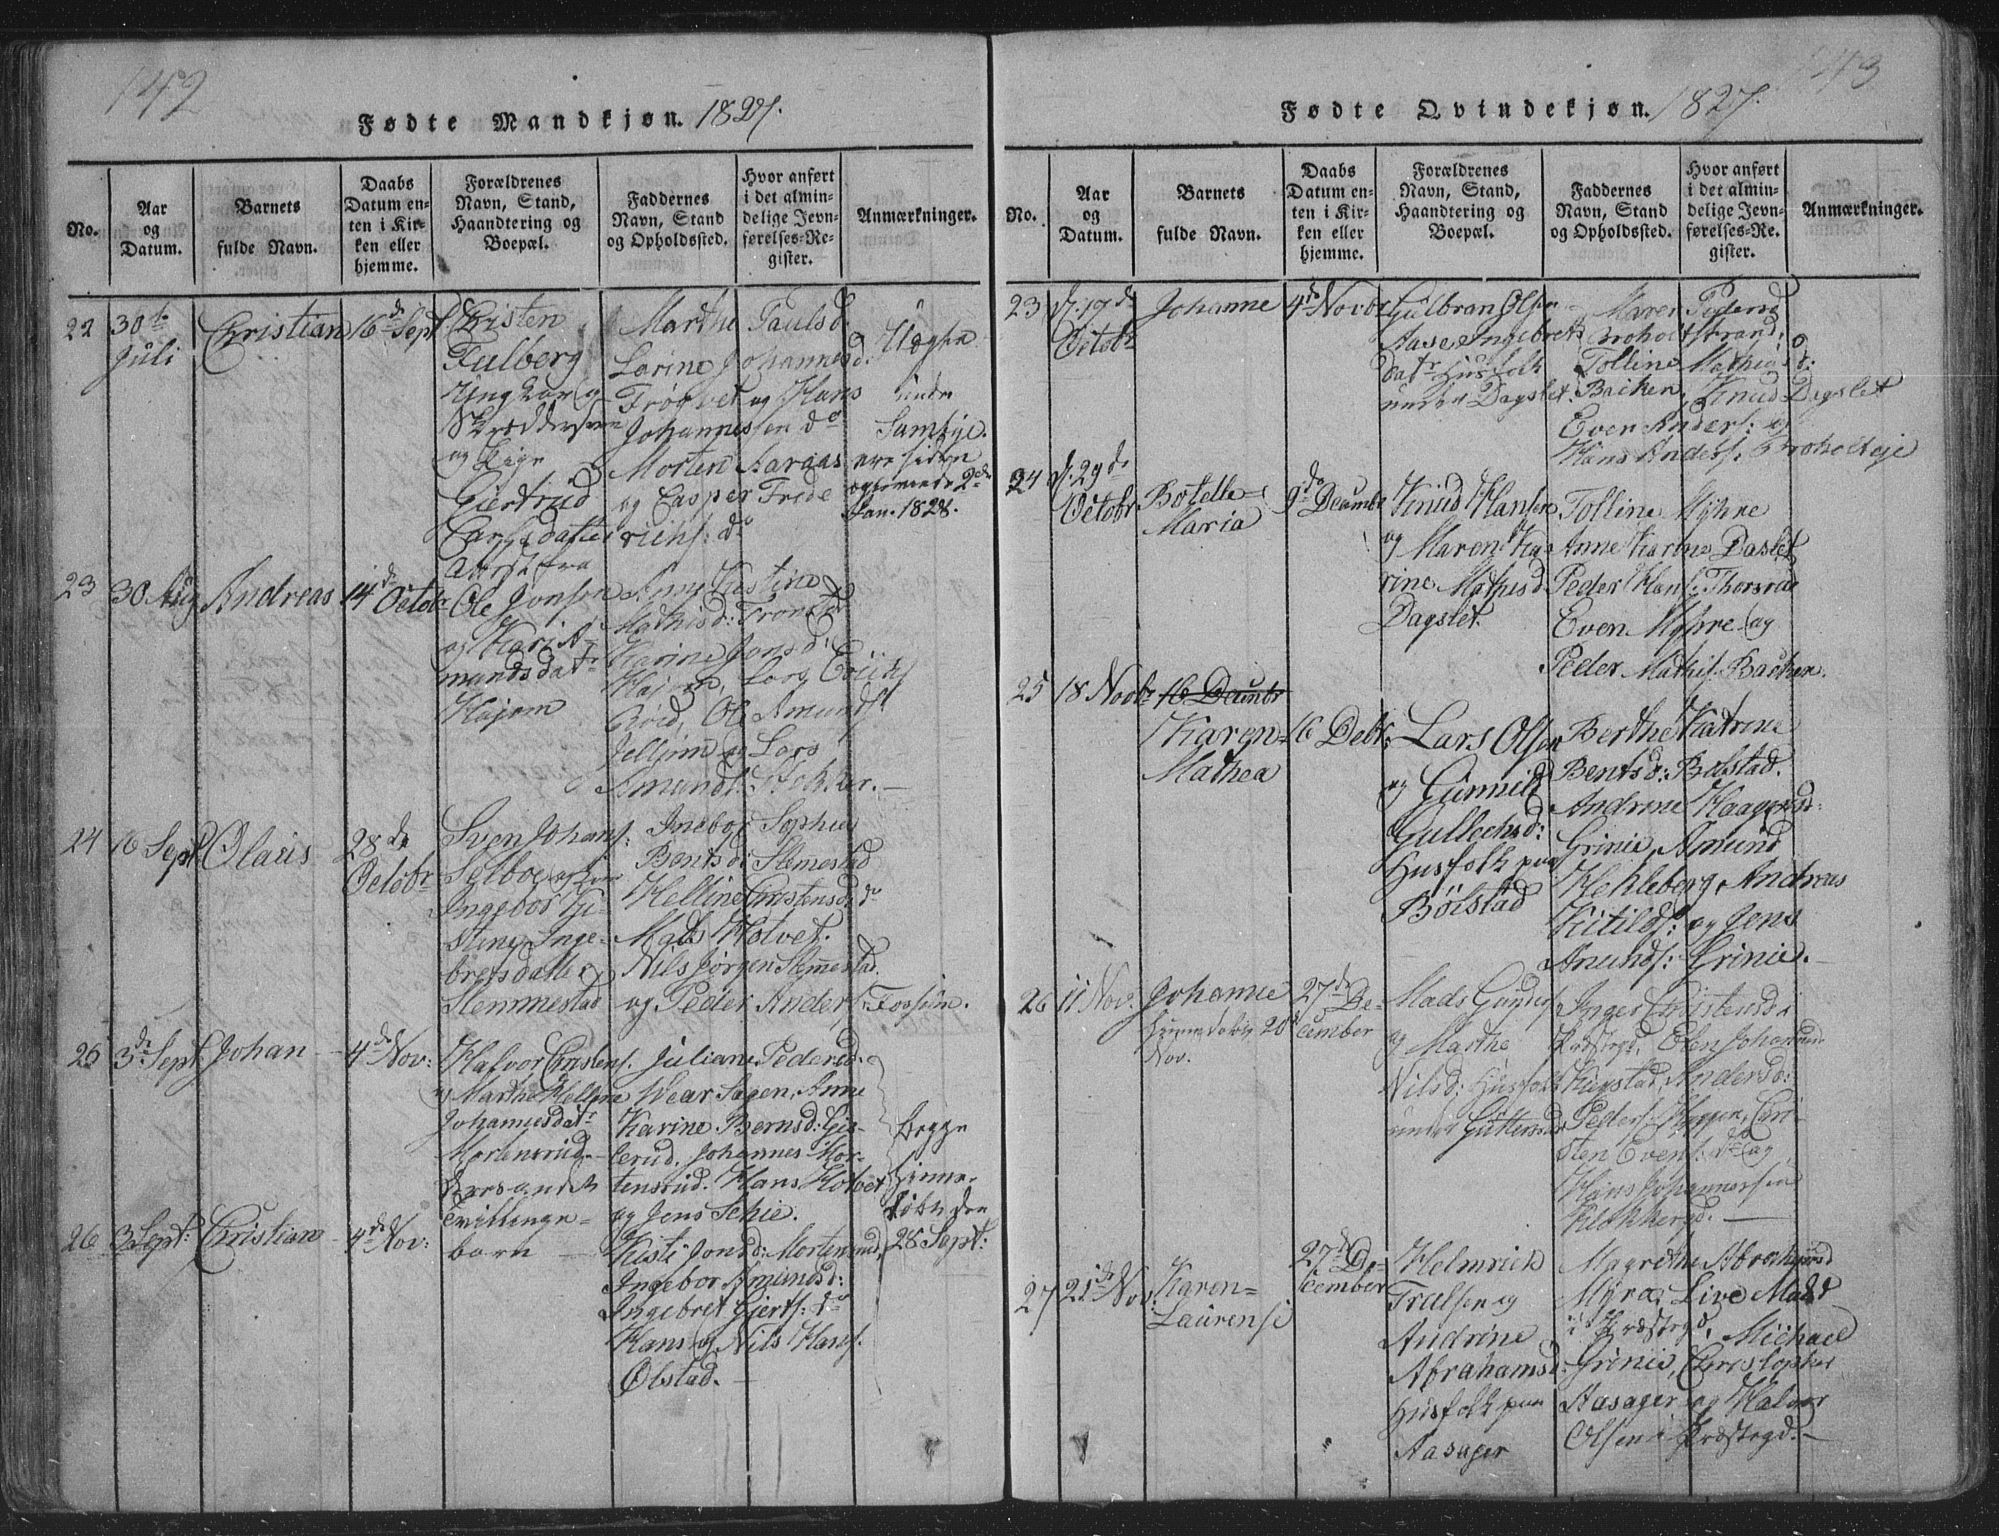 142
Fødte Mandkjøn. 1827.
No.
Aar
og
Datum.
Barnets
fulde Navn.
Daabs
Datum en-
ten i Kir-
ken eller
hjemme.
Forældrenes
Navn, Stand,
Haandtering og
Boepæl.
Faddernes
Navn, Stand
og Opholdssted.
Hvor anført
i det almin-
delige Jevn-
førelses-Re-
gister.
Anmærkninger.
22
30te
Juli
Christian
16de Sept
Christen
Fulberg
Ungkar og
Skreddersven
og Pige
Giertrud
Carlsdatter
Marthe Paulsd.
Larine Johannesd.
Frøqvet og Hans
Johannessen do
Morten Aaraas
og Casper Frede
richs: do
Uægte
Jan. 1828.
23
30 Aug
Andreas
14de Octobr
Ole Jonsen
og Kari A-
mundsdatr
Hajem
Anne Kistine
Mathisd:
Karine Jonsd:
Hajem, Lars Erichs
Ole Amunds
og Lars
Amunds:
24
16 Sept
Olaus
28de
Octobr
Sven Johans:
Selboe og Kone
Ingebor Ki-
stine Inge-
bretsdatter
Stemmestad
Ingebor Sophie
Bentsd: Stemestad
Helline Christensd: do
Mads Holvet.
Nils Jørgen Stemestad.
og Peder Anders: Tossum.
25
3de Sept.
Johan
4de Nov:
Halvor Christens.
og Marthe Helline
Johannesdatr
Mortensrud
Tvillinge-
børn
Juliane Pedersd:
Wear Sagen, Anne
Karine Berntsd: Gis-
lerud, Johannes Mor-
tensrud. Hans Holvet
og Jens Schie.
Begge
hjemme-
døbte den
28 Sept:
26
3 Sept:
Christian
4de Nov:
Kisti Jonsd: Mortensrud,
Ingebor Amundsd:
Ingebret Gjerts: do
Hans og Nils Hans:
Ølstad.
143
Fødte Qvindekjøn. 1827.
No.
Aar
og
Datum.
Barnets
fulde Navn.
Daabs
Datum en-
ten i Kir-
ken eller
hjemme.
Forældrenes
Navn, Stand,
Haandtering og
Boepæl.
Faddernes
Navn, Stand
og Opholdssted.
Hvor anført
i det almin-
delige Jevn-
førelses-Re-
gister.
Anmærkninger.
23
d. 19de
Octobr
Johanne
4de Novbr
Gulbran Olsen
Aase Ingebrets
datr Husfolk
under Dagslet.
Maren Pedersd
Tolline Mathisd:
Backen, Knud Dagslet
Even Anders: og
Hans Anders: Broholteje
24
d. 29de
Octobr
Botelle-
Maria
9de Decembr
Knud Hansen
og Maren Ka-
rine Mathisd
Dagslet.
Tolline Myhre
Anne Karine Daslet
Peder Hans: Thorsrud
Even Myhre og
Peder Mathis: Backen.
25
18 Novbr
16 Decembr
Karen-
Mathea
16 Debr:
Lars Olsen
og Gunnild
Gullechsd:
Husfolk paa
Bölstad
Berthe Katrine
Bentsd: Bølstad.
Andrine Haagensd:
Grinie, Amund
Kehleberg, Andreas
Kitilds: og Jens
Amunds: Grinie.
26
11 Nov:
Johanne
Hjemmedøbt 20de
Nov.
27de De-
cember
Mads Gunders
og Marthe
Nilsd: Husfolk
under Guttersrud
Inger Christensd:
Præstegd, Elen Johannesd
Andersd:
Peders:
Chri-
sten Evens: do og
Hans Johannessen
Klokkergd.
27
21de Nov:
Karen-
Laurense
27de De-
cember
Helmrich
Troelsen og
Andrine
Abrahamsd:
Husfolk paa
Aasager
Magrethe Abrahamsd
Myra, Live Madsd
i Præstegd, Michael
Grinie, Christopher
Aasager og Halvor
Olsen i Præstegd.